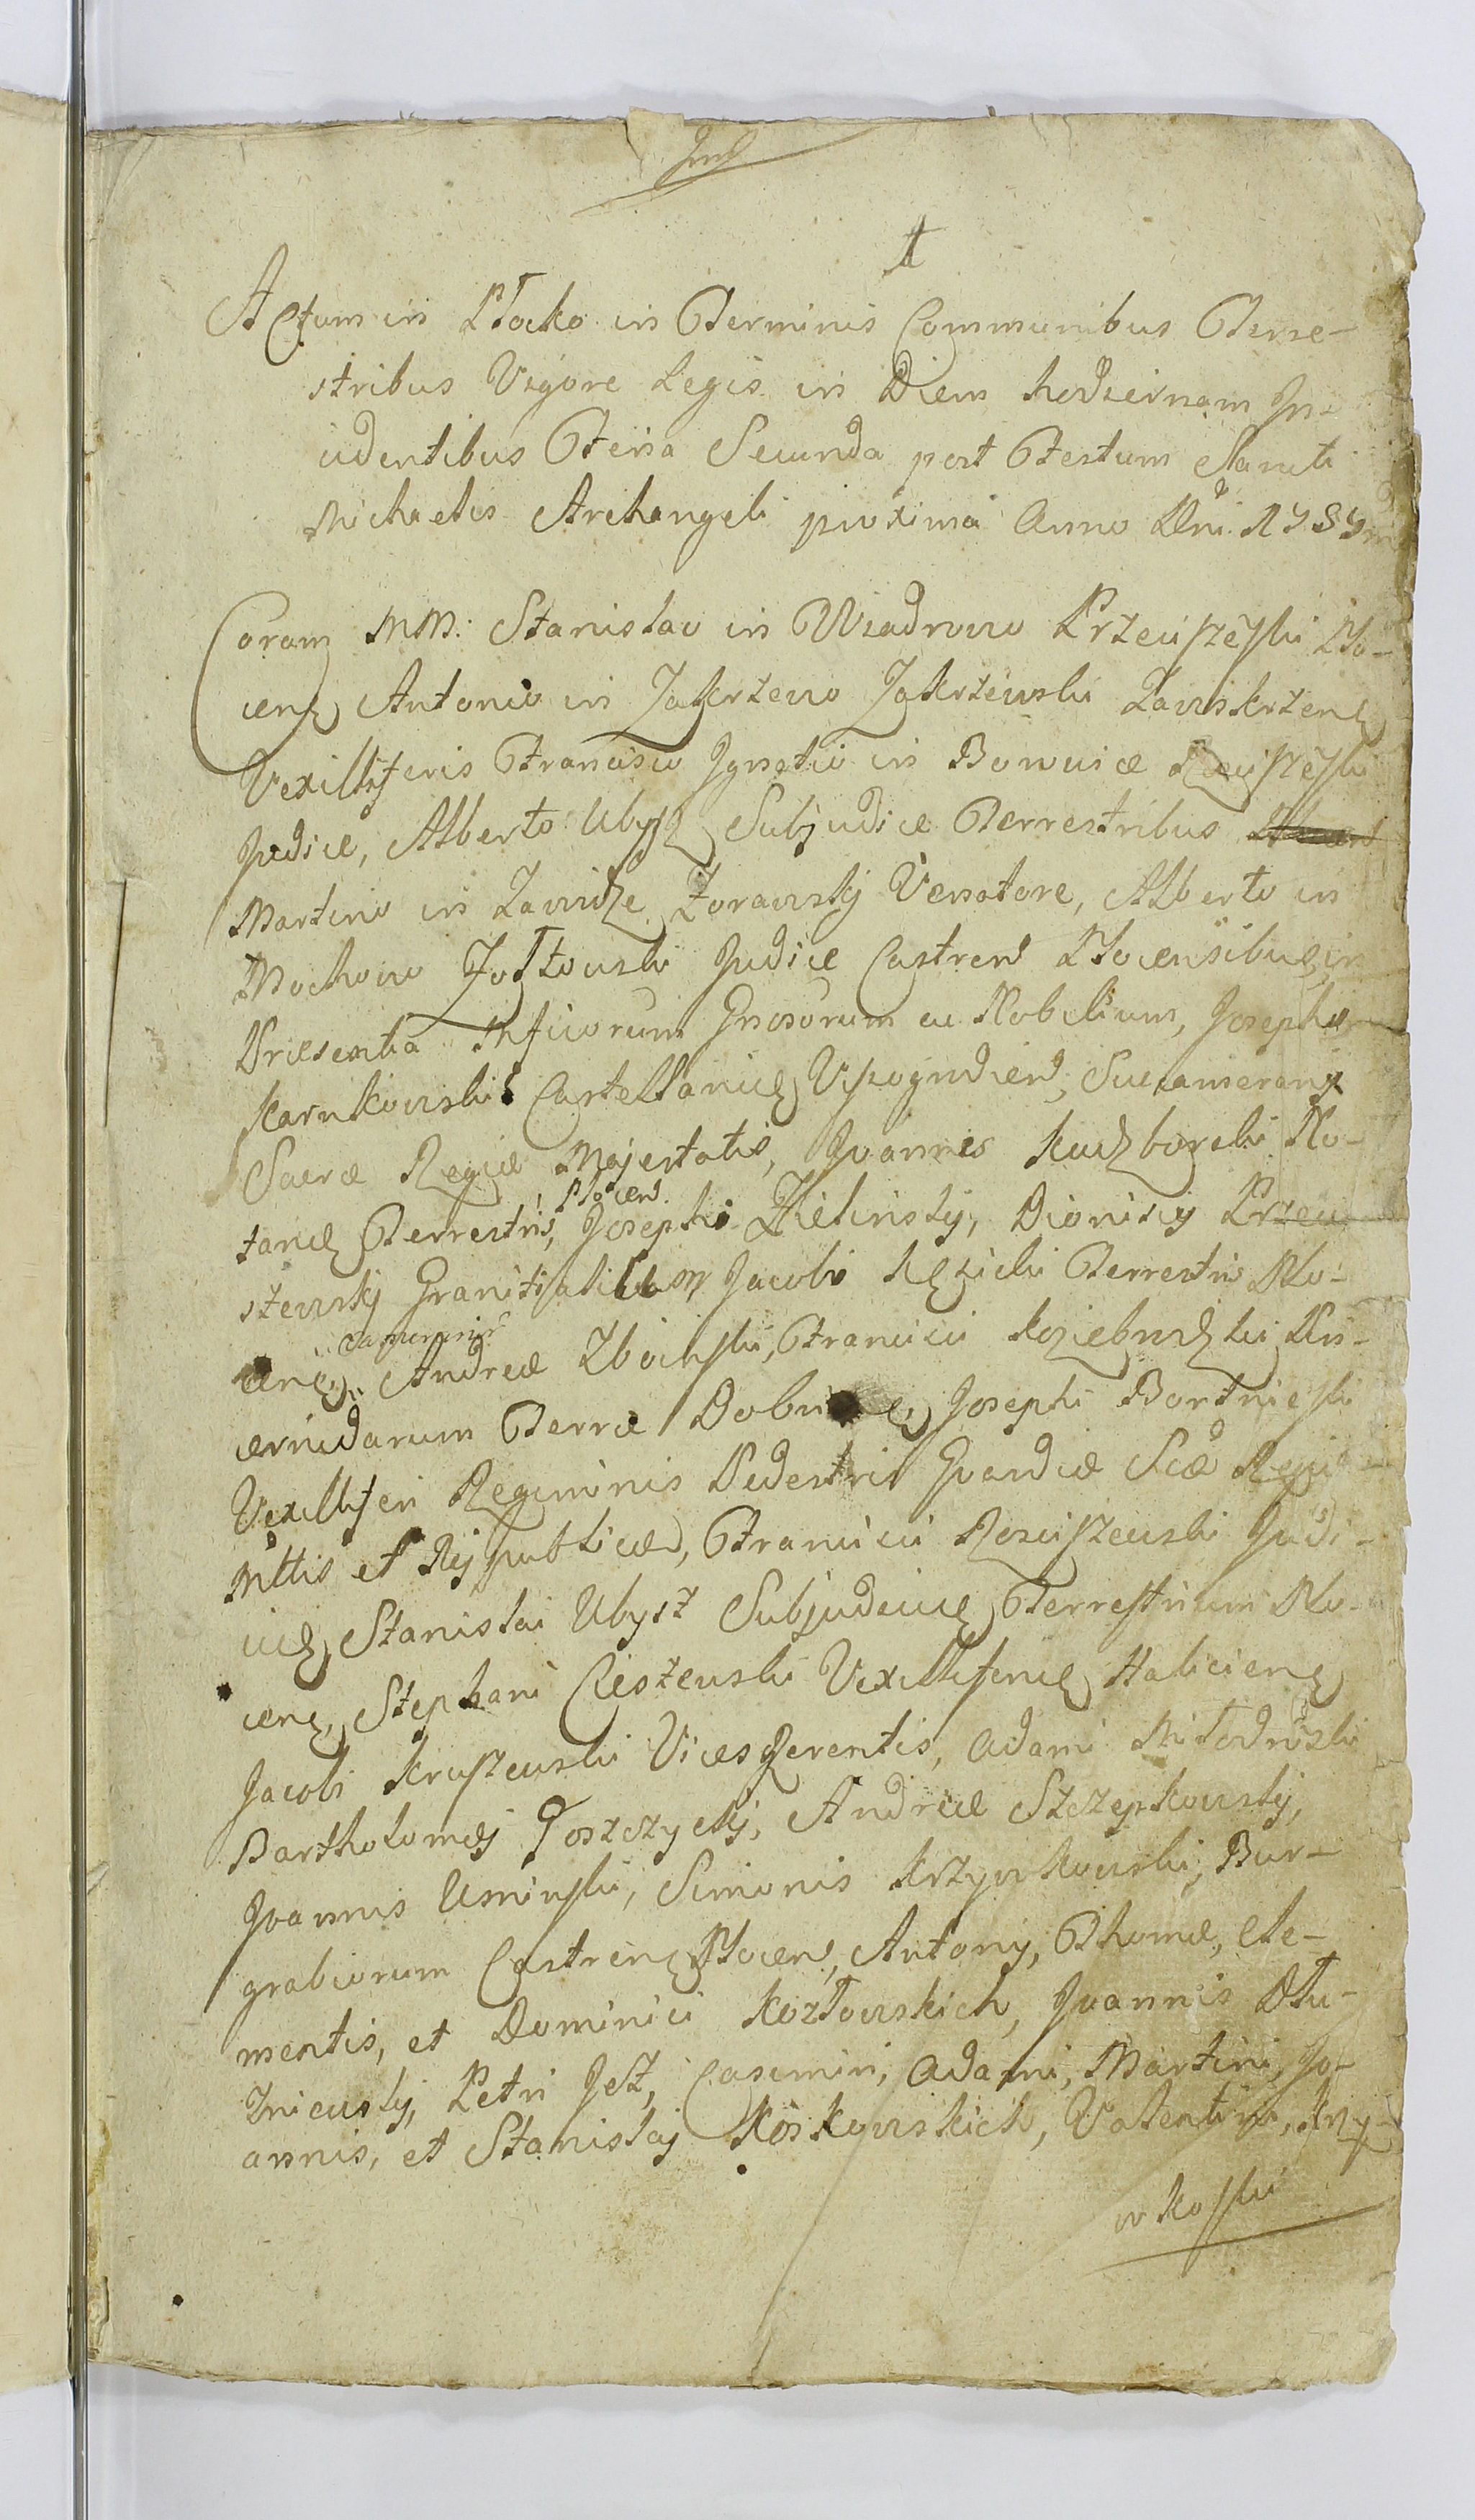 Actum in Płocko in Terminis Communibus Terre-
stribus Vigore Legis in Diem hodiernam In-
cidentibus Feria Secunda post Festum Sancti
Michaelis Archangeli proxima Anno Dni 1757mo
Coram MM: Stanislao in Wiadrowo Przeciszeski Plo-
cen Antonio in Zakrzewo Zakrzewski Zawskrzen
Vexilliferis Francisco Ignatio in Borwice Rosciszeski
Judice, Alberto Ubysz Subjudice Terrestribus
Martino in Zawidze Zorawskj Venatore, Alberto in
Mochowo Żołtowski Judice Castren Plocensibus, in
Præsentia Mficorum Gnosorum ac Nobilium, Josephi
Karnkowski Castellanic Wyszogrodien, Succamerarij
Sacræ Regiæ Majestatis, Joannis Kuczborski No-
tarii Terrestris, Plocen. Josephi Zielinskj, Dionisij Przeci-
szewskj Granitialium Jacobi Kęsicki Terrestris Plo-
cen, Camerarior Andreæ Zboinski, Francisci Koziebrodzki Pin-
cernidarum Terræ Dobrin, Josephi Bortnieski
Vexilliferi Regiminis Pedestris Gvardiæ Scæ Regiæ
Mttis et Rjpublicæ, Francisci Rosciszewski Judi-
cic Stanislai Ubysz Subjudicic Terrestrium Plo-
cen, Stephani Cieszewski Vexilliferic Halicien
Jacobi Kruszewski Vicesgerentis, Adami Miłodroski
Bartholomæj Goszczyckj, Andreæ Szczepkowskj,
Joannis Uminski, Simonis Krzywkowski, Bur-
grabiorum Castren Plocen, Antonij, Thomæ, Cle-
mentis, et Dominici Kozłowskich, Joannis Dłu-
zniewskj, Petri Jeż, Casimiri, Adami, Martini, Jo-
annis, et Stanislaj Koskowskich, Valentini, Krzy-
wkoski